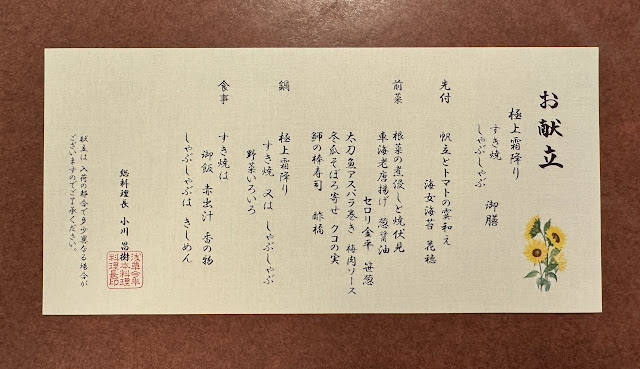 お献立
極上霜降り
すき焼
しゃぶしゃぶ 御膳
先付 帆立とトマトの霙和え
海女海苔 花穂
前菜 根菜の煮浸しと焼伏見
車海老唐揚げ 葱醤油
セロリ金平 笹葱
太刀魚アスパラ巻き 梅肉ソース
冬瓜そぼろ寄せ クコの実
の棒寿司 酢橘
鍋 極上霜降り
すき焼 又は しゃぶしゃぶ
野菜いろいろ
食事 すき焼は
御飯 赤出汁 香の物
しゃぶしゃぶは きしめん
総料理長 小川 昌樹
浅草今半
日本料理
料理長印
献立は入荷の都合で多少異なる場合が
ございますのでご了承ください。